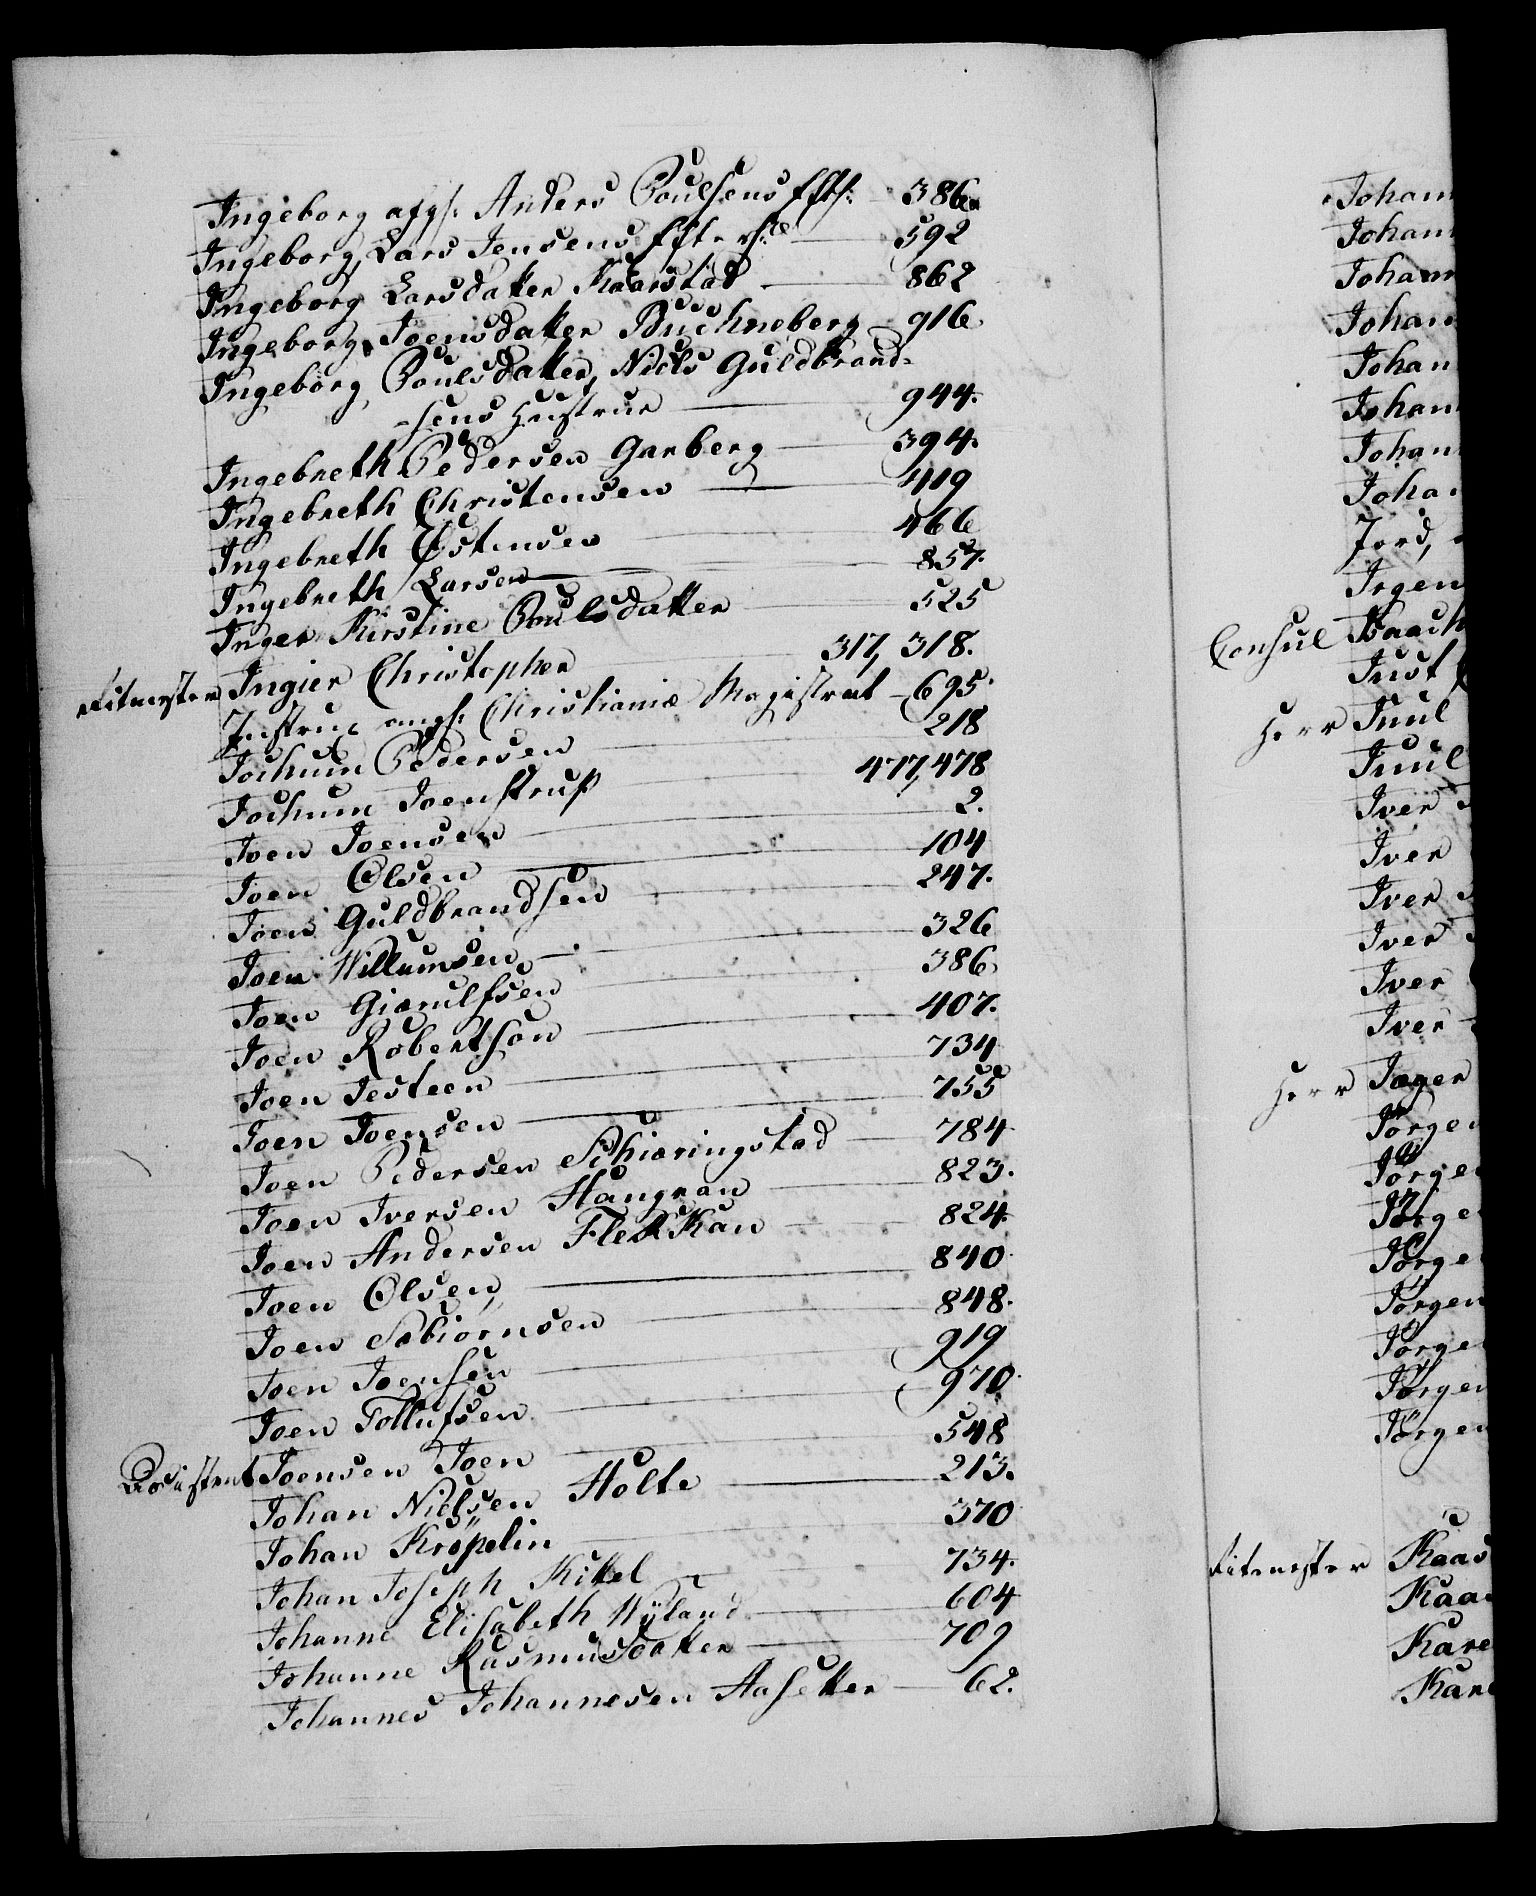 Ingeborg afgl: Anders Poulsens Efft: 386
Ingeborg, Lars Jensens Efterl: 592
Ingeborg Larsdatter Kaarstad 862
Ingeborg Joensdatter Buchneberg 916
Ingeborg Poulsdatter, Niels Guldbrand-
-sens Hustrue 944.
Ingebreth Pedersen Garberg 394.
Ingebreth Christensen 419
Ingebreth Østensen 466
Ingebreth Larsen 857.
Inger Kirstine Poulsdatter 525
Ritmester Ingier Christopher 317, 318.
Instrux angl: Christianiæ Magistrat 695.
Jochum Pedersen 218
Jochum Joenstrup 477, 478
Joen Joensen 2.
Joen Olsen 104
Joen Guldbrandsen 247.
Joen Willumsen 326
Joen Giærulfsen 386
Joen Robertson 407.
Joen Jesteen 734
Joen Joensen 755
Joen Pedersen Schiæringstad 784
Joen Iversen Haugran 823.
Joen Andersen Flekkan 824.
Joen Olsen, 840.
Joen Asbiørnsen 848.
Joen Joensen 919
Joen Tollufsen 970.
Assistent Joensen Joen 548
Johan Nielsen Holte 213.
Johan Kröpelin 370
Johan Joseph Kittel 734.
Johanne Elisabeth Wÿland 604
Johanne Rasmusdatter 709
Johannes Johannesen Aasetter 62.
Joham
Joham
Johann
Johan
Johan
Johan
Johan
Johan
Jord,
Irgen
Consul Isaach
Just
Herr Juul
Juul
Iver
Iver
Iver
Iver
Iver
Iver
Herr Jæger
Jörgen
Jörgen
Jörge
Jörge
Jörgen
Jörge
Jörgen
Jörgen
Ritmester Kaas
Kaas
Kare
Kare